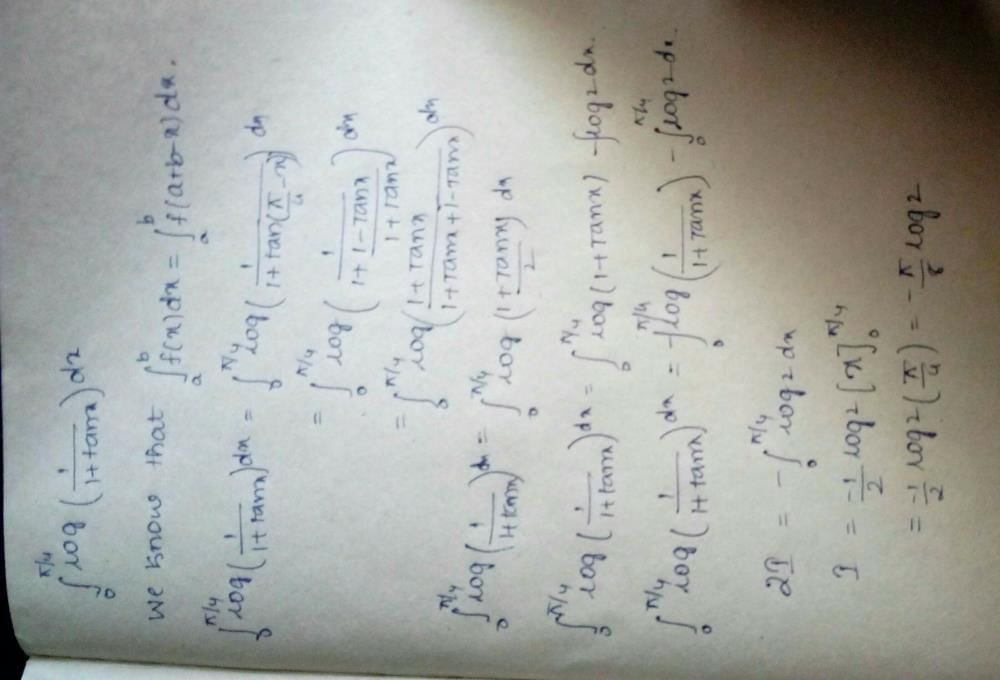 ∫₀^{π/4} log(1/(1+tanx)) dx
We know that ∫ₐᵇ f(x)dx = ∫ₐᵇ f(a+b-x)dx.
∫₀^{π/4} log(1/(1+tanx))dx = ∫₀^{π/4} log(1/(1+tan(π/4-x))) dx
= ∫₀^{π/4} log(1/(1+(1-tanx)/(1+tanx))) dx
= ∫₀^{π/4} log((1+tanx)/(1+tanx+1-tanx)) dx
∫₀^{π/4} log(1/(1+tanx))dx = ∫₀^{π/4} log((1+tanx)/2) dx
∫₀^{π/4} log(1/(1+tanx))dx = ∫₀^{π/4} log(1+tanx) - log2 dx.
∫₀^{π/4} log(1/(1+tanx))dx = -∫₀^{π/4} log(1/(1+tanx)) - ∫₀^{π/4} log2 dx.
2I = -∫₀^{π/4} log2 dx
I = -1/2 log2 [x]₀^{π/4}
= -1/2 log2 (π/4) = -π/8 log2